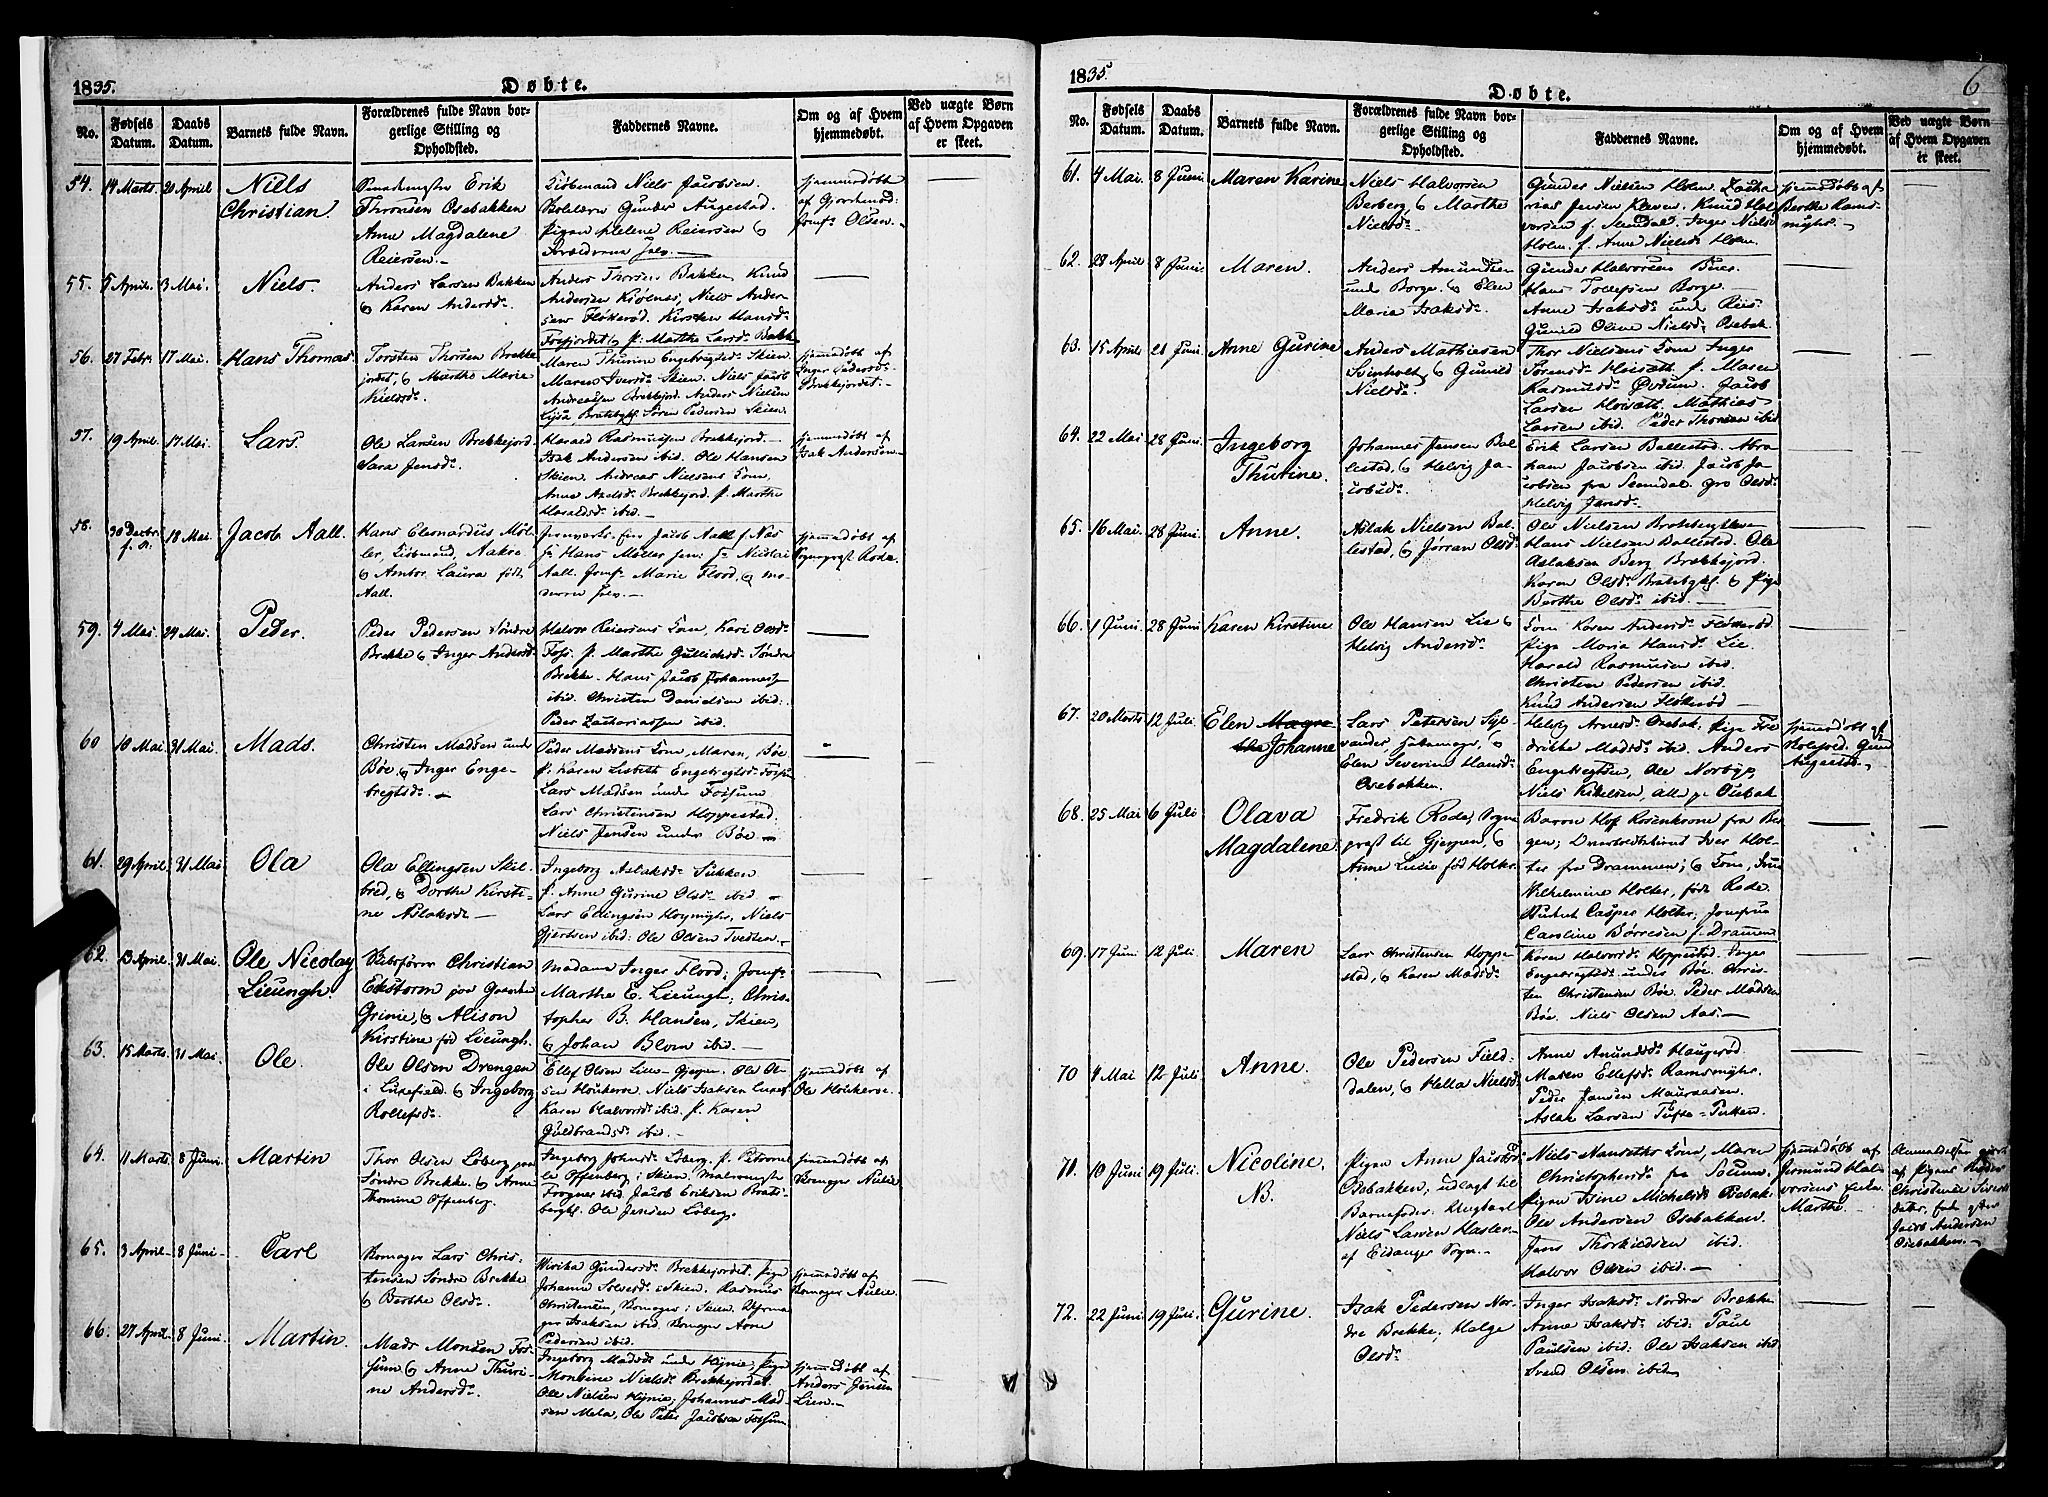 1835.
Døbte.
No.
Fødsels Datum.
Daabs Datum.
Barnets fulde Navn.
Forældrenes fulde Navn bor-
gerlige Stilling og
Opholdsted.
Faddernes Navne.
Om og af Hvem
hjemmedøbt.
Ved uægte Børn
af Hvem Opgaven
er skeet.
54. 14 Marts 20 April
Niels
Christian
Erik
Thoresen Osebakken
Anne Magdalene
Reiersen.
Niels Jacobsen.
Gunder Augestad.
Pigen Helene Reiersen &
hjemmedøbt
Jomf: Olsen.
55. 5 April. 3 Mai.
Niels.
Anders Larsen Bakken
& Karen Andersd:
Anders Thors: Bakken, Knud
Andersen Kiølnes, Niels Ander
sen Fløterød. Kirsten Hansd:
Marthe Larsd: Bakk
56. 27 Febr. 17 Mai.
Hans Thomas
Torsten Thorsen Brekke
jordet, & Marthe Marie
Nielsd:
Maren Thurine Engebregtsd: Skien
Maren Iversd: Skien. Niels Jacob
Andreassen Brekkejord. Anders Nielsen
Søren Pedersen Skien.
hjemmedøbt af
Inger Pedersd:
Brekkejordet.
57. 19 April. 17 Mai.
Lars.
Ole Larsen Brekkejord
Sara Jensd:
Harald Rasmussen Brekkejord.
Isak Andersen ibid. Ole Hansen
Skien. Andreas Nielsens Kone,
Anne Axelsd: Brekkejord. p. Marthe
Haraldsd: ibid.
hjemmedøbt af
Isak Andersen
58. 30 Decbr. 18 Mai.
Jacob Aall.
Hans Eleonardus Møl-
ler,
& Ambor Laura født
Aall.
Jacob Aall f. Næs
Hans Møller sen: Hr Nicolai
Aall. Jomf: Marie Flood, & mo-
deren selv.
hjemmedøbt af
Sognepræst Rode.
59. 4 Mai. 24 Mai.
Peder.
Peder Pedersen Søndre
Brekke & Inger Andersd:
Halvor Reiersens Kone, Kari Olsd:
Foss. p. Marthe Gullichsd: Søndre
Brekke. Hans Jacob Johannesen
ibid. Christen Danielsen ibid:
Peder Zachariassen ibid.
60 10 Mai. 31 Mai.
Mads.
Christen Madsen under
Bøe, & Inger Enge-
bregtsd:
Peder Madsens Kone, Maren, Bøe
p. Karen Lisbeth Engebregtsd: Fossum
Lars Madsen under Fossum
Lars Christensen Hoppestad.
Niels Jensen under Bøe
61. 29 April. 31 Mai
Ola
Ola Ellingsen Skil-
bred, & Dorthe Kirsti-
ne Aslaksd:
Ingeborg Aslaksd: Sükken
p. Anne Gurine Olsd: ibid
Lars Ellingsen Høymyhr, Niels
Gjertsen ibid: Ole Olsen Tvedten.
62. 13 April. 31 Mai.
Ole Nicolay
Lieungh.
Christian
Ekstorm paa
Grinie, & Alison
Kirstine fød Lieungh.
Madame Inger Flood; Jomf:
Marthe E. Lieungh; Chris-
topher B. Hansen, Skien,
& Johan Blom ibid.
63. 15 Marts. 31 Mai
Ole.
Ole Olsen Drengen
i Luxefjeld & Ingeborg
Rollefsd:
Ellef Olsen Lille-Gjerpen. Ole Ol
sen Houkerøe. Niels Isaksen
Karen Halvorsd: ibid p. Karen
Guldbrandsd: ibid.
hjemmedøbt af
Ole Houkerøe.
64. 11 Marts. 8 Juni.
Martin
Thor Olsen Løberg paa
Søndre Brekke. & Anne
Thomine Offenberg.
Ingeborg Johnsd: Løberg. p. Petronel
le Offenberg i Skien.
Frogner ibid. Jacob Eriksen Brats-
bergkl. Ole Jensen Løberg.
hjemmedøbt af
65. 3 April 8 Juni
Carl
Lars Chris-
tensen Søndre Brekke
& Berthe Olsd:
Gundersd: Brekkejordet. Pige
Johanne Solvesd: i Skien. Rasmus
Christensen, i Skien.
Isaksen ibid.
Pedersen ibid.
hjemmedøbt af
66. 27 April. 8 Juni.
Martin.
Mads Monsen Fos-
sum & Anne Thuri-
ne Andersd:
Ingeborg Madsd: under Hynie; Pige
Monsine Nielsd: Brekkejordet
Ole Nielsen Hynie; Johannes Mad
sen Mela, Ole Peter Jacobsen Fossum
hjemmedøbt af
Anders Jensen
Lien.
1835.
Døbte.
6
No.
Fødsels Datum.
Daabs Datum.
Barnets fulde Navn.
Forældrenes fulde Navn bor-
gerlige Stilling og
Opholdsted.
Faddernes Navne.
Om og af Hvem
hjemmedøbt.
Ved uægte Børn
af Hvem Opgaven
er skeet.
61. 4 Mai. 8 Juni.
Maren Karine
Niels Halvorsen
Berberg & Marthe
Nielsd:
Gunder Nielsen Holm. Zacha
rias Jensen Kleven. Knud Hal
vorsen f. Slemdal. Inger Nielsd
Holm. p. Anne Nielsd: Holm.
hjemmedøbt af
Berthe Rams-
myhr.
62. 28 April 8 Juni
Maren.
Anders Amundsen
und Borge. & Elen
Marie Isaksd:
Gunder Halvorsen Bues.
Hans Tollefsen Borge.
Anne Isaksd: und Riis
Gunild Oline Nielsd: Osebak.
63. 15 April 21 Juni.
Anne Gurine
Anders Mathiesen
Svinholt, & Gunild
Nielsd:
Thor Nielsens Kone Inger
Sørensd: Hoisæth p. Maren
Rasmusd: Jacob
Larsen Hoisæth. Mathias
Larsen ibid. Peder Thorsen ibid
64. 22 Mai 28 Juni.
Ingeborg
Thurine.
Johannes Jensen Bal
lestad, & Helvig Ja-
cobsd:
Erik Larsen Ballestad. Abra
ham Jacobsen ibid. Jacob Ja
cobsen fra Slemdal. Gro Olsd:
Helvig Jansd:
65. 16 Mai. 28 Juni.
Anne.
Aslak Nielsen Bal-
lestad, & Jørran Olsd:
Ole Nielsen
Hans Nielsen Ballestad. Ole
Aslaksen Berg Brekkejord.
Karen Olsd: Bratsbgkl. & Pige
Berthe Olsd: ibid.
66. 1 Juni. 28 Juni
Karen Kirstine
Ole Hansen Lie &
Helvig Andersd:
Kone Karen Andersd: Fløterød
Pige Maria Hansd: Lie.
Harald Rasmusen ibid.
Christen Pedersen ibid.
Knud Andersen Fløterød
67. 20 Marts 12 Juli.
Elen
Johanne
Lars Petersen Syl-
vander &
Elen Severine Hansd:
Osebakken.
Helvig Arnesd: Osebak. Pige Fre
drikke Madsd: ibid. Anders
Engebregtsen, Ole Norbye,
Niels Kittelsen, alle p. Osebak.
hjemmedøbt af
68. 25 Mai 6 Juli
Olava
Magdalene.
Fredrik Rode, Sogne
præst til Gjerpen, &
Anne Lucie fød Holter
Baron Hof Rosenkrone fra Ber
gen; Iver Hol-
ter fra Drammen; & Kone, Frue
Wilhelmine Holter, født Rode.
Student Casper Holter; Jomfrue
Caroline Børresen f. Dramen
69. 17 Juni 12 Juli.
Maren
Lars Christensen Hoppe
stad, & Karen Madsd:
Karen Halvorsd: Hoppestad. Inger
Engebregtsd: under Bøe. Chris-
ten Christensen Bøe. Peder Madsen
Bøe. Niels Olsen Aas.
70 4 Mai 12 Juli
Anne.
Ole Pedersen Field-
dalen, & Hella Nielsd:
Anne Amundsd: Haugerød.
Maren Ellefsd: Ramsmyhr.
Peder Jansen Mauraasen.
Aslak Larsen Tufte-Pukken.
71. 10 Juni 19 Juli.
Nicoline.
N.
Pigen Anne
Osebakken, udlagt til
Barnefader: Ungkarl
Niels Larsen Haslen
af Eidanger Sogn.
Niels Nanseths Kone, Maren
Christophersd: fra
Pigen Michelsd: Osebak.
Ole Andersen Osebakken.
Jens Thorkieldsen ibid.
Halvor Olsen ibid.
hjemmedøbt af
Jermund Hal-
vorsens Enke
Marthe.
af Pigens Moder
Christense
Jacob Andersen
Osebakken.
72. 22 Juni 19 Juli.
Gurine.
Isak Pedersen Nor-
dre Brekke, Helge
Olsd:
Inger Isaksd: Nordre Brække
Anne Isaksd: ibid: Paul
Paulsen ibid: Ole Isaksen ibid
Svend Olsen ibid